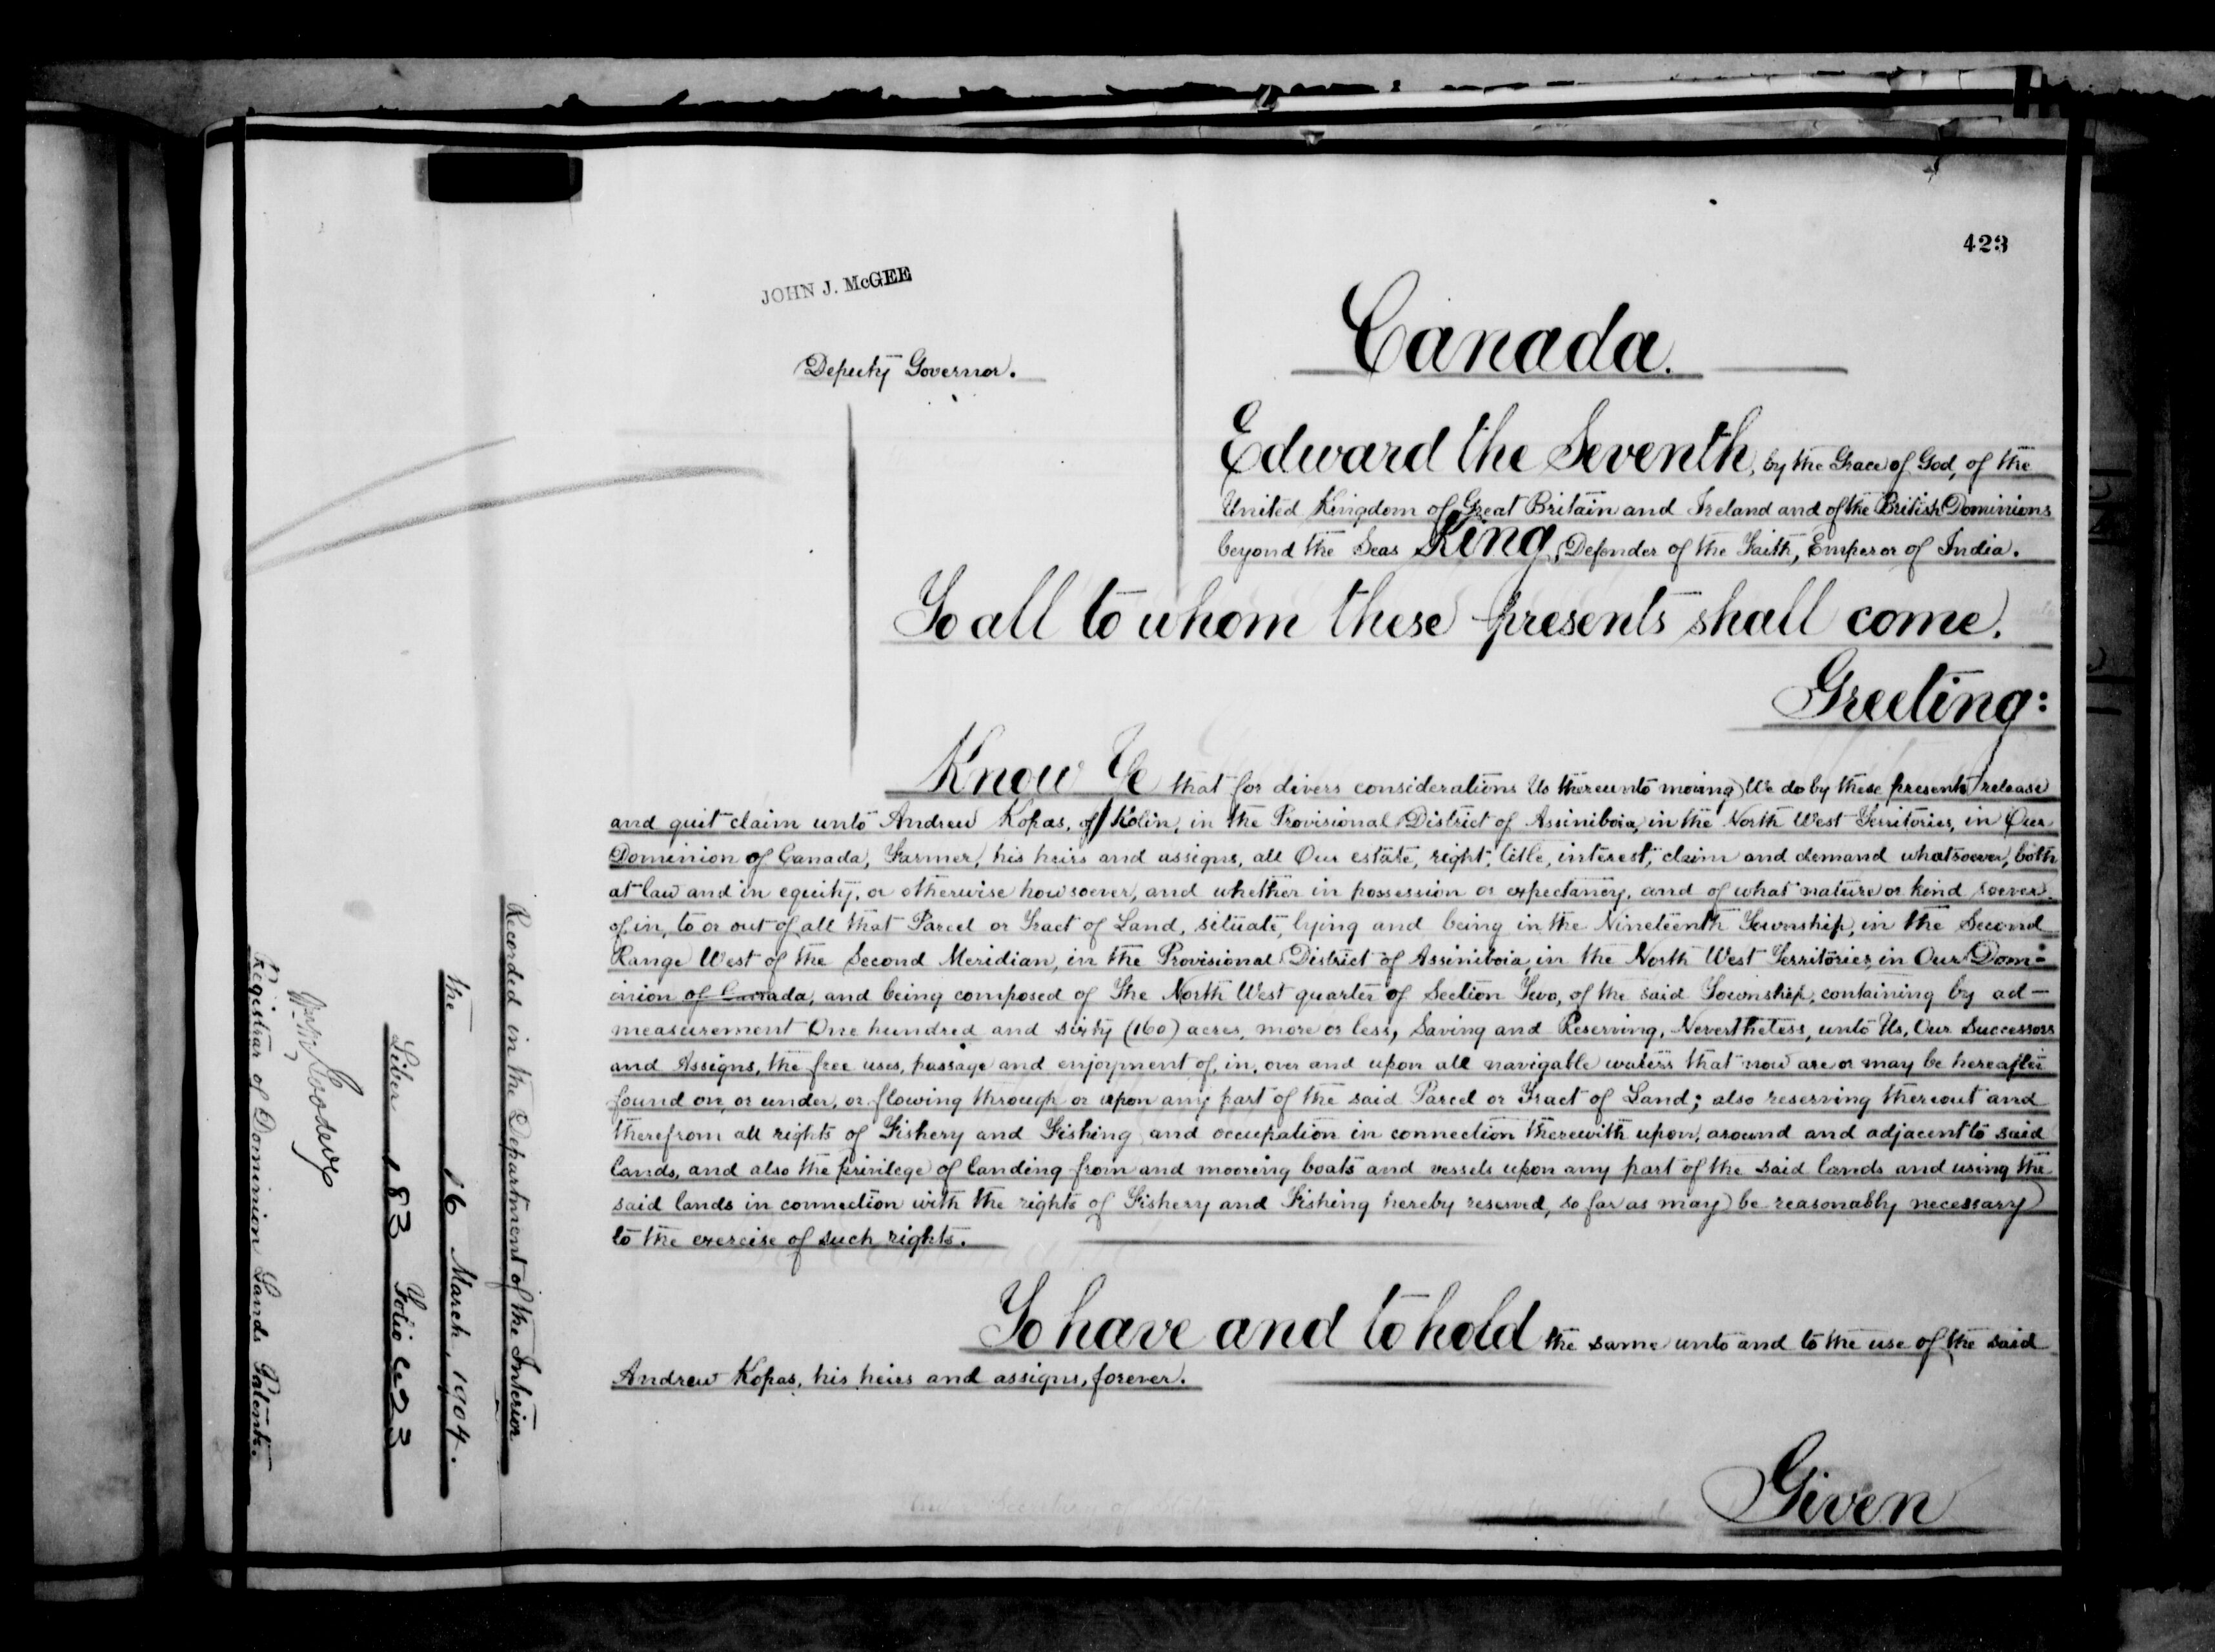 423
JOHN J. McGEE
Deputy Governor.
Canada.
Edward the Seventh, by the Grace of God, of the
United Kingdom of Great Britain and Ireland and of the British Dominions
beyond the Seas King, Defender of the Faith, Emperor of India.
To all to whom these presents shall come.
Greeting:
Know Ye that for divers considerations Us thereunto moving We do by these presents release
and quit claim unto Andrew Kopas, of Kolin, in the Provisional District of Assiniboia, in the North West Territories, in Our
Dominion of Canada, Farmer, his heirs and assigns, all Our estate, right, title, interest, claim and demand whatsoever, both
at law and in equity, or otherwise howsoever, and whether in possession or expectancy, and of what nature or kind soever
of, in, to or out of all that Parcel or Tract of Land, situate, lying and being in the Nineteenth Township, in the Second
Range West of the Second Meridian, in the Provisional District of Assiniboia, in the North West Territories, in Our Dom-
inion of Canada, and being composed of The North West quarter of Section Two, of the said Township, containing by ad-
measurement One hundred and sixty (160) acres, more or less, Saving and Reserving, Nevertheless, unto Us, Our Successors
and Assigns, the free uses, passage and enjoyment of, in, over and upon all navigable waters that now are or may be hereafter
found on, or under, or flowing through or upon any part of the said Parcel or Tract of Land; also reserving thereout and
therefrom all rights of Fishery and Fishing and occupation in connection therewith upon, around and adjacent to said
lands, and also the privilege of landing from and mooring boats and vessels upon any part of the said lands and using the
said lands in connection with the rights of Fishery and Fishing hereby reserved, so far as may be reasonably necessary
to the exercise of such rights.
To have and to hold the same unto and to the use of the said
Andrew Kopas, his heirs and assigns, forever.
Given
Recorded in the Department of the Interior
the 16 March, 1904.
Liber 183 Folio 423
Registrar of Dominion Lands Patents.